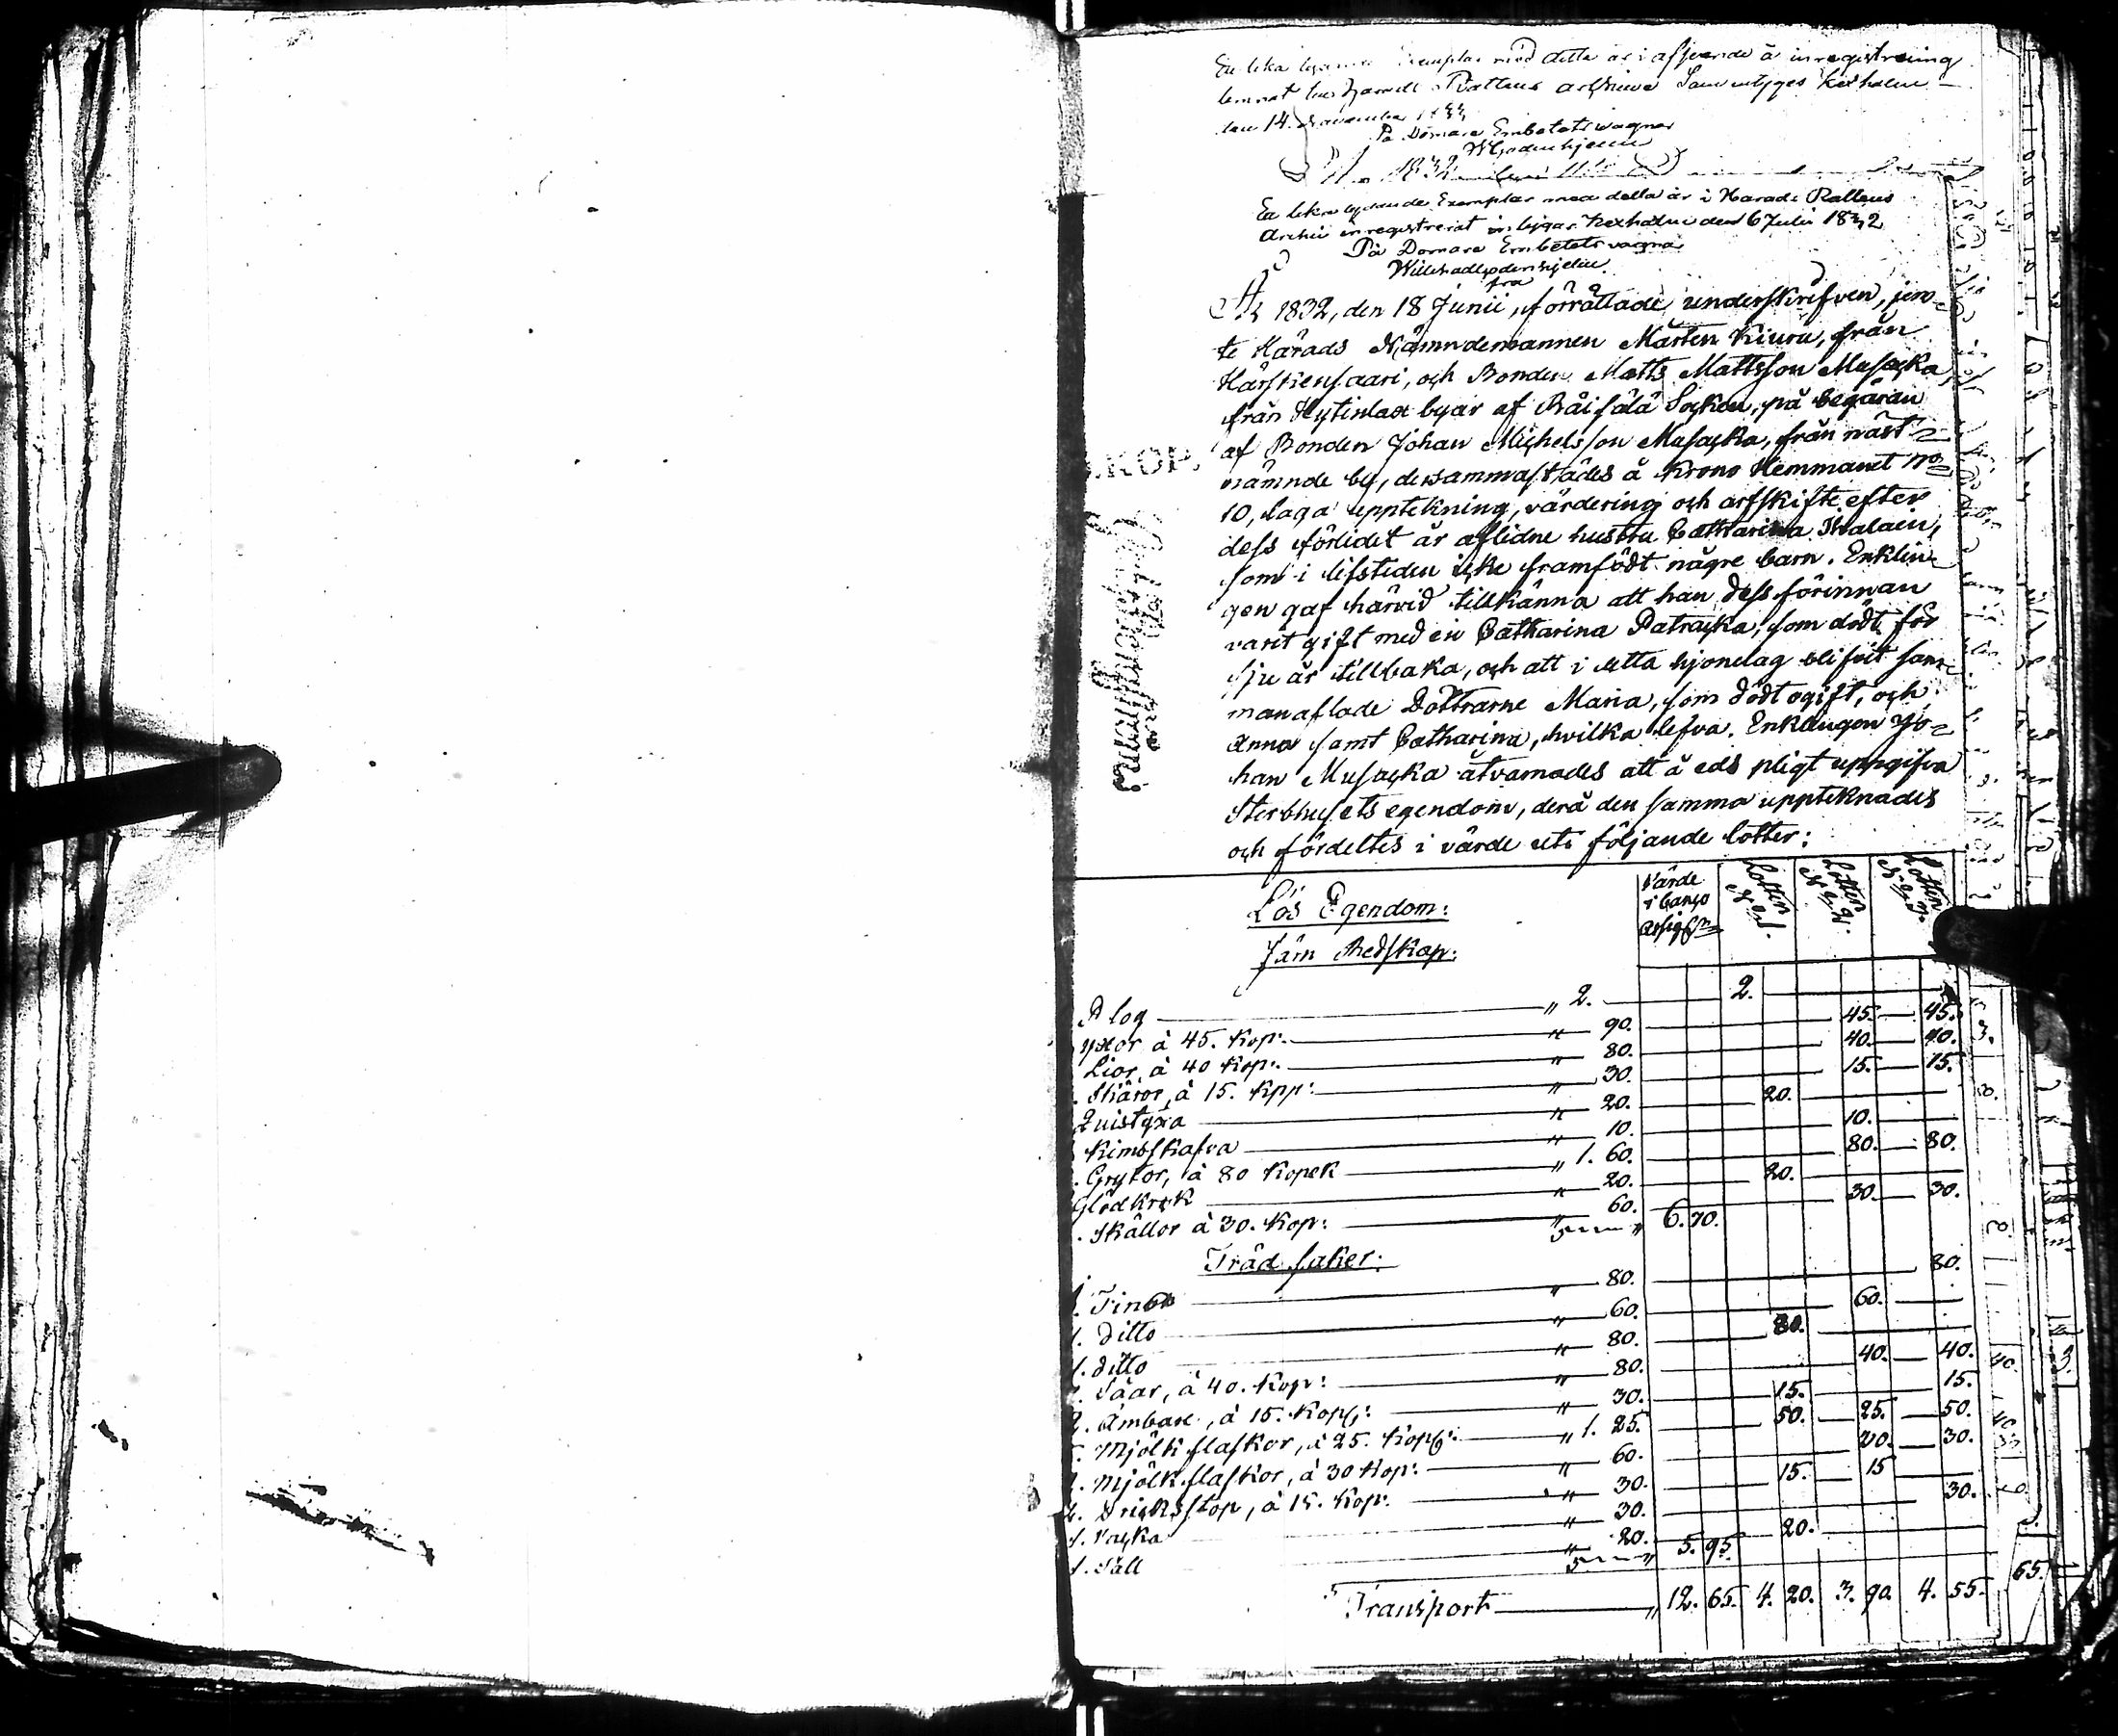 En lika lydande Exemplar med detta är i afseende å inregistrering
lemnat till Härads Rättens archive Som intyges Kexholm
den 14. November 1833
På Domare Embetets vagnar
En lika lydande Exemplar med detta är i Härads Rättens
Archiv inregistrerat intygar Kexholm den 6 Julii 1832
På Domare Embetets vagnar
År 1832, den 18 Junii, förrättade underskrifven, jem-
te Härads Nämndemannen Mårten Kiuru, från
Härskiensaari, och Bonden Matts Mattsson Musacka
från Hytinlax byar af Räisälä Socken, på begäran
af Bonden Johan Michelsson Musacka, från näst-
nämnde by, dersammastädes å Krono Hemmanet No
10, laga uppteckning, värdering och arfskifte efter
dess förlidet år aflidne hustru Catharina Ihalain,
som i lifstiden icke framfödt någre barn. Enklin-
gen gaf härvid tillkänna att han dess förinnan
varit gift med en Catharina Patracka, som dödt för
sju år tillbaka, och att i detta hjonelag blifvit sam-
manaflade Döttrarne Maria, som dödt ogift, och
Anna samt Catharina, hvilka lefva. Enklingen Jo-
han Musacka åtvarnades att å eds pligt uppgifva
Sterbhusets egendom, derå den samma upptecknades
och fördeltes i värde uti följande lotter:
KOP.
Lös Egendom: Värde i banco assign Lotten N 1. Lotten N 2. Lotten N 3.
Järn Redskap:
Plog " 2. 2.
yxor à 45. Kop: " 90. 45. 45.
Lior, à 40 Kop: " 80. 40. 40.
Skäror, à 15. Kop: " 30. 15. 15.
Quistyxa " 20. 20.
Kimbskafva " 10. 10.
Grytor, à 80 Kopek " 1. 60. 80. 80.
Glödkrok " 20. 20.
Skållor à 30. Kop: " 60. 6. 70. 30. 30.
Träd saker:
1. Tina " 80. 80.
1. Ditto " 60. 60.
1. ditto " 80. 80.
2. Såar, à 40. Kop: " 80. 40. 40.
2. Ämbare, à 15. Kop: " 30. 15. 15.
5. Mjölk flaskor, à 25. Kop: " 1. 25. 50. 25. 50.
2. Mjölk flaskor, à 30 Kop: " 60. 30.
2. Dricksstop, à 15. Kop: " 30. 15. 15
1. Vacka " 30. 30.
1. Såll " 20. 5. 95. 20.
Transport " 12. 65. 4. 20. 3. 90. 4. 55.